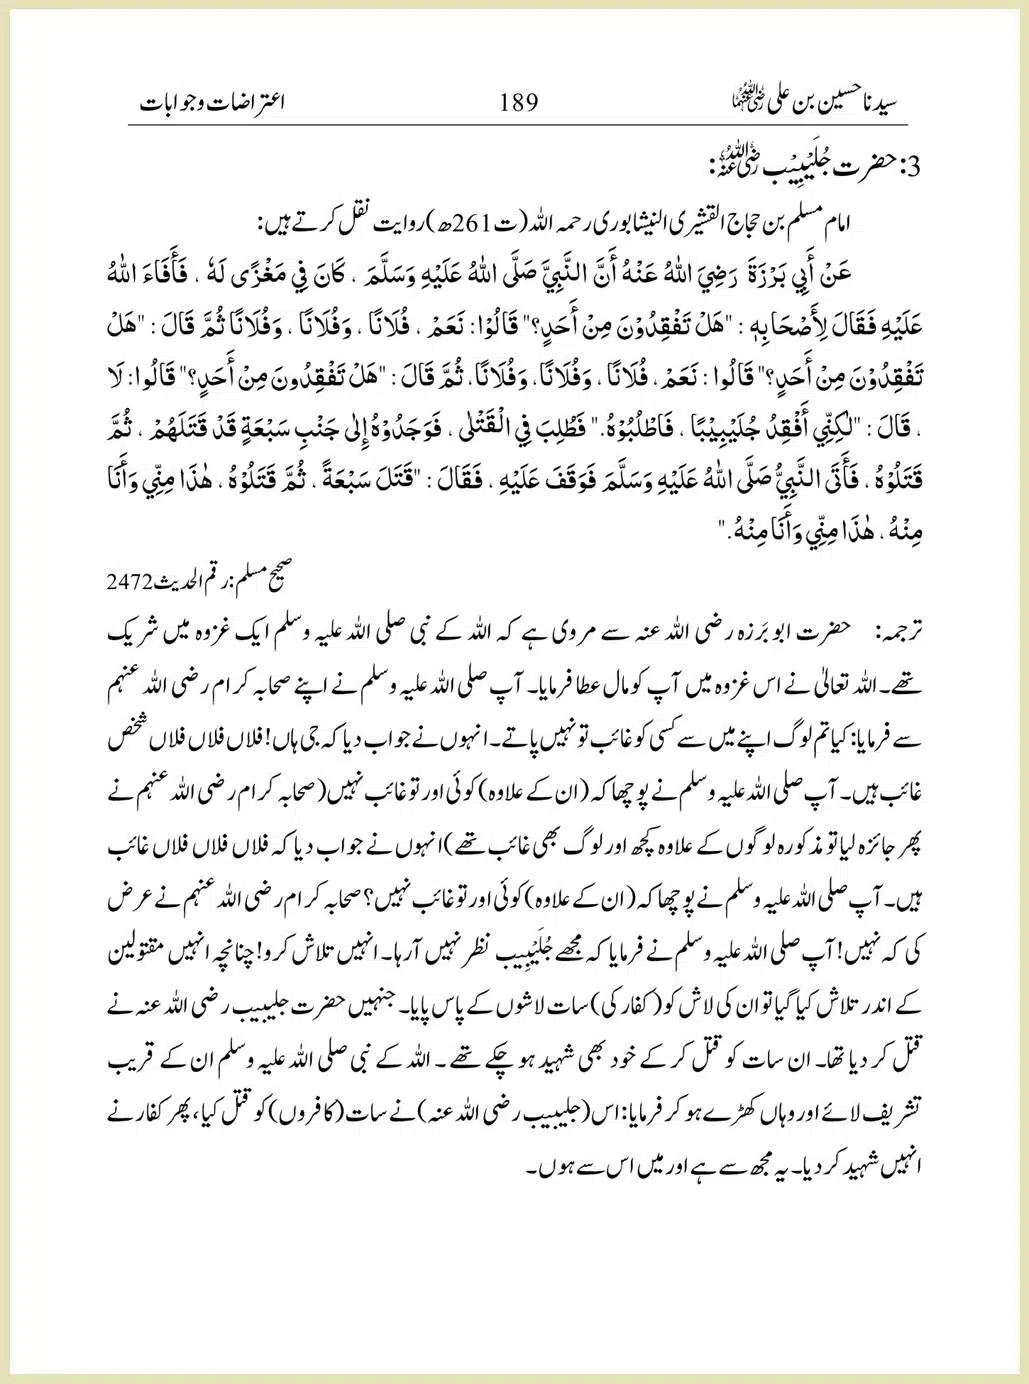 سیدنا حسین بن علی رضی اللہ عنہما 189 اعتراضات و جوابات
3: حضرت جُلَیْبِیْب رضی اللہ عنہ:
امام مسلم بن حجاج القشیری النیشابوری رحمہ اللہ (ت261ھ) روایت نقل کرتے ہیں:
عَنْ أَبِي بَرْزَةَ رَضِيَ اللهُ عَنْهُ أَنَّ النَّبِيَّ صَلَّى اللهُ عَلَيْهِ وَسَلَّمَ ، كَانَ فِي مَغْزًى لَهٗ ، فَأَفَاءَ اللهُ
عَلَيْهِ فَقَالَ لِأَصْحَابِهٖ : "هَلْ تَفْقِدُوْنَ مِنْ أَحَدٍ؟" قَالُوْا: نَعَمْ ، فُلَانًا ، وَفُلَانًا ، وَفُلَانًا ثُمَّ قَالَ : "هَلْ
تَفْقِدُوْنَ مِنْ أَحَدٍ؟" قَالُوا : نَعَمْ، فُلَانًا ، وَفُلَانًا، وَفُلَانًا، ثُمَّ قَالَ : "هَلْ تَفْقِدُونَ مِنْ أَحَدٍ؟" قَالُوا: لَا
، قَالَ : "لٰكِنِّي أَفْقِدُ جُلَيْبِيْبًا ، فَاطْلُبُوْهُ." فَطُلِبَ فِي الْقَتْلٰى ، فَوَجَدُوْهُ إِلٰى جَنْبِ سَبْعَةٍ قَدْ قَتَلَهُمْ ، ثُمَّ
قَتَلُوْهُ ، فَأَتَى النَّبِيُّ صَلَّى اللهُ عَلَيْهِ وَسَلَّمَ فَوَقَفَ عَلَيْهِ ، فَقَالَ : "قَتَلَ سَبْعَةً ، ثُمَّ قَتَلُوْهُ ، هٰذَا مِنِّي وَأَنَا
مِنْهُ ، هٰذَا مِنِّي وَأَنَا مِنْهُ."
صحیح مسلم: رقم الحدیث 2472
ترجمہ: حضرت ابو بَرزہ رضی اللہ عنہ سے مروی ہے کہ اللہ کے نبی صلی اللہ علیہ وسلم ایک غزوہ میں شریک
تھے۔ اللہ تعالیٰ نے اس غزوہ میں آپ کو مال عطا فرمایا۔ آپ صلی اللہ علیہ وسلم نے اپنے صحابہ کرام رضی اللہ عنہم
سے فرمایا: کیا تم لوگ اپنے میں سے کسی کو غائب تو نہیں پاتے۔ انہوں نے جواب دیا کہ جی ہاں! فلاں فلاں فلاں شخص
غائب ہیں۔ آپ صلی اللہ علیہ وسلم نے پوچھا کہ (ان کے علاوہ) کوئی اور تو غائب نہیں (صحابہ کرام رضی اللہ عنہم نے
پھر جائزہ لیا تو مذکورہ لوگوں کے علاوہ کچھ اور لوگ بھی غائب تھے) انہوں نے جواب دیا کہ فلاں فلاں فلاں غائب
ہیں۔ آپ صلی اللہ علیہ وسلم نے پوچھا کہ (ان کے علاوہ) کوئی اور تو غائب نہیں؟ صحابہ کرام رضی اللہ عنہم نے عرض
کی کہ نہیں! آپ صلی اللہ علیہ وسلم نے فرمایا کہ مجھے جُلَیْبِیب نظر نہیں آرہا۔ انہیں تلاش کرو! چنانچہ انہیں مقتولین
کے اندر تلاش کیا گیا تو ان کی لاش کو (کفار کی) سات لاشوں کے پاس پایا۔ جنہیں حضرت جلیبیب رضی اللہ عنہ نے
قتل کر دیا تھا۔ ان سات کو قتل کر کے خود بھی شہید ہو چکے تھے ۔ اللہ کے نبی صلی اللہ علیہ وسلم ان کے قریب
تشریف لائے اور وہاں کھڑے ہو کر فرمایا: اس (جلیبیب رضی اللہ عنہ) نے سات (کافروں) کو قتل کیا، پھر کفار نے
انہیں شہید کر دیا۔ یہ مجھ سے ہے اور میں اس سے ہوں۔